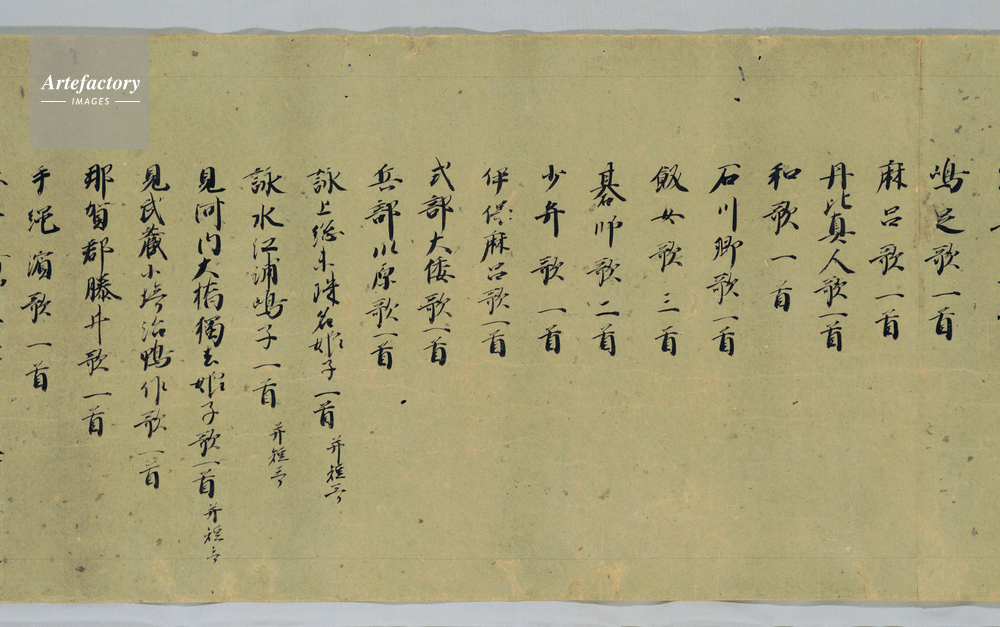 嶋足歌一首
麻呂歌一首
丹比真人歌一首
和歌一首
石川卿歌一首
飯女歌三首
碁師歌二首
少弁歌一首
伊保麻呂歌一首
式部大倭歌一首
兵部川原歌一首
詠上総末珠名娘子一首 并短哥
詠水江浦嶋子一首 并短哥
見河内大橋獨去娘子歌一首 并短哥
見武蔵小埼沼鴨作歌一首
那賀郡曝井歌一首
手綱濱歌一首
Artefactory
IMAGES